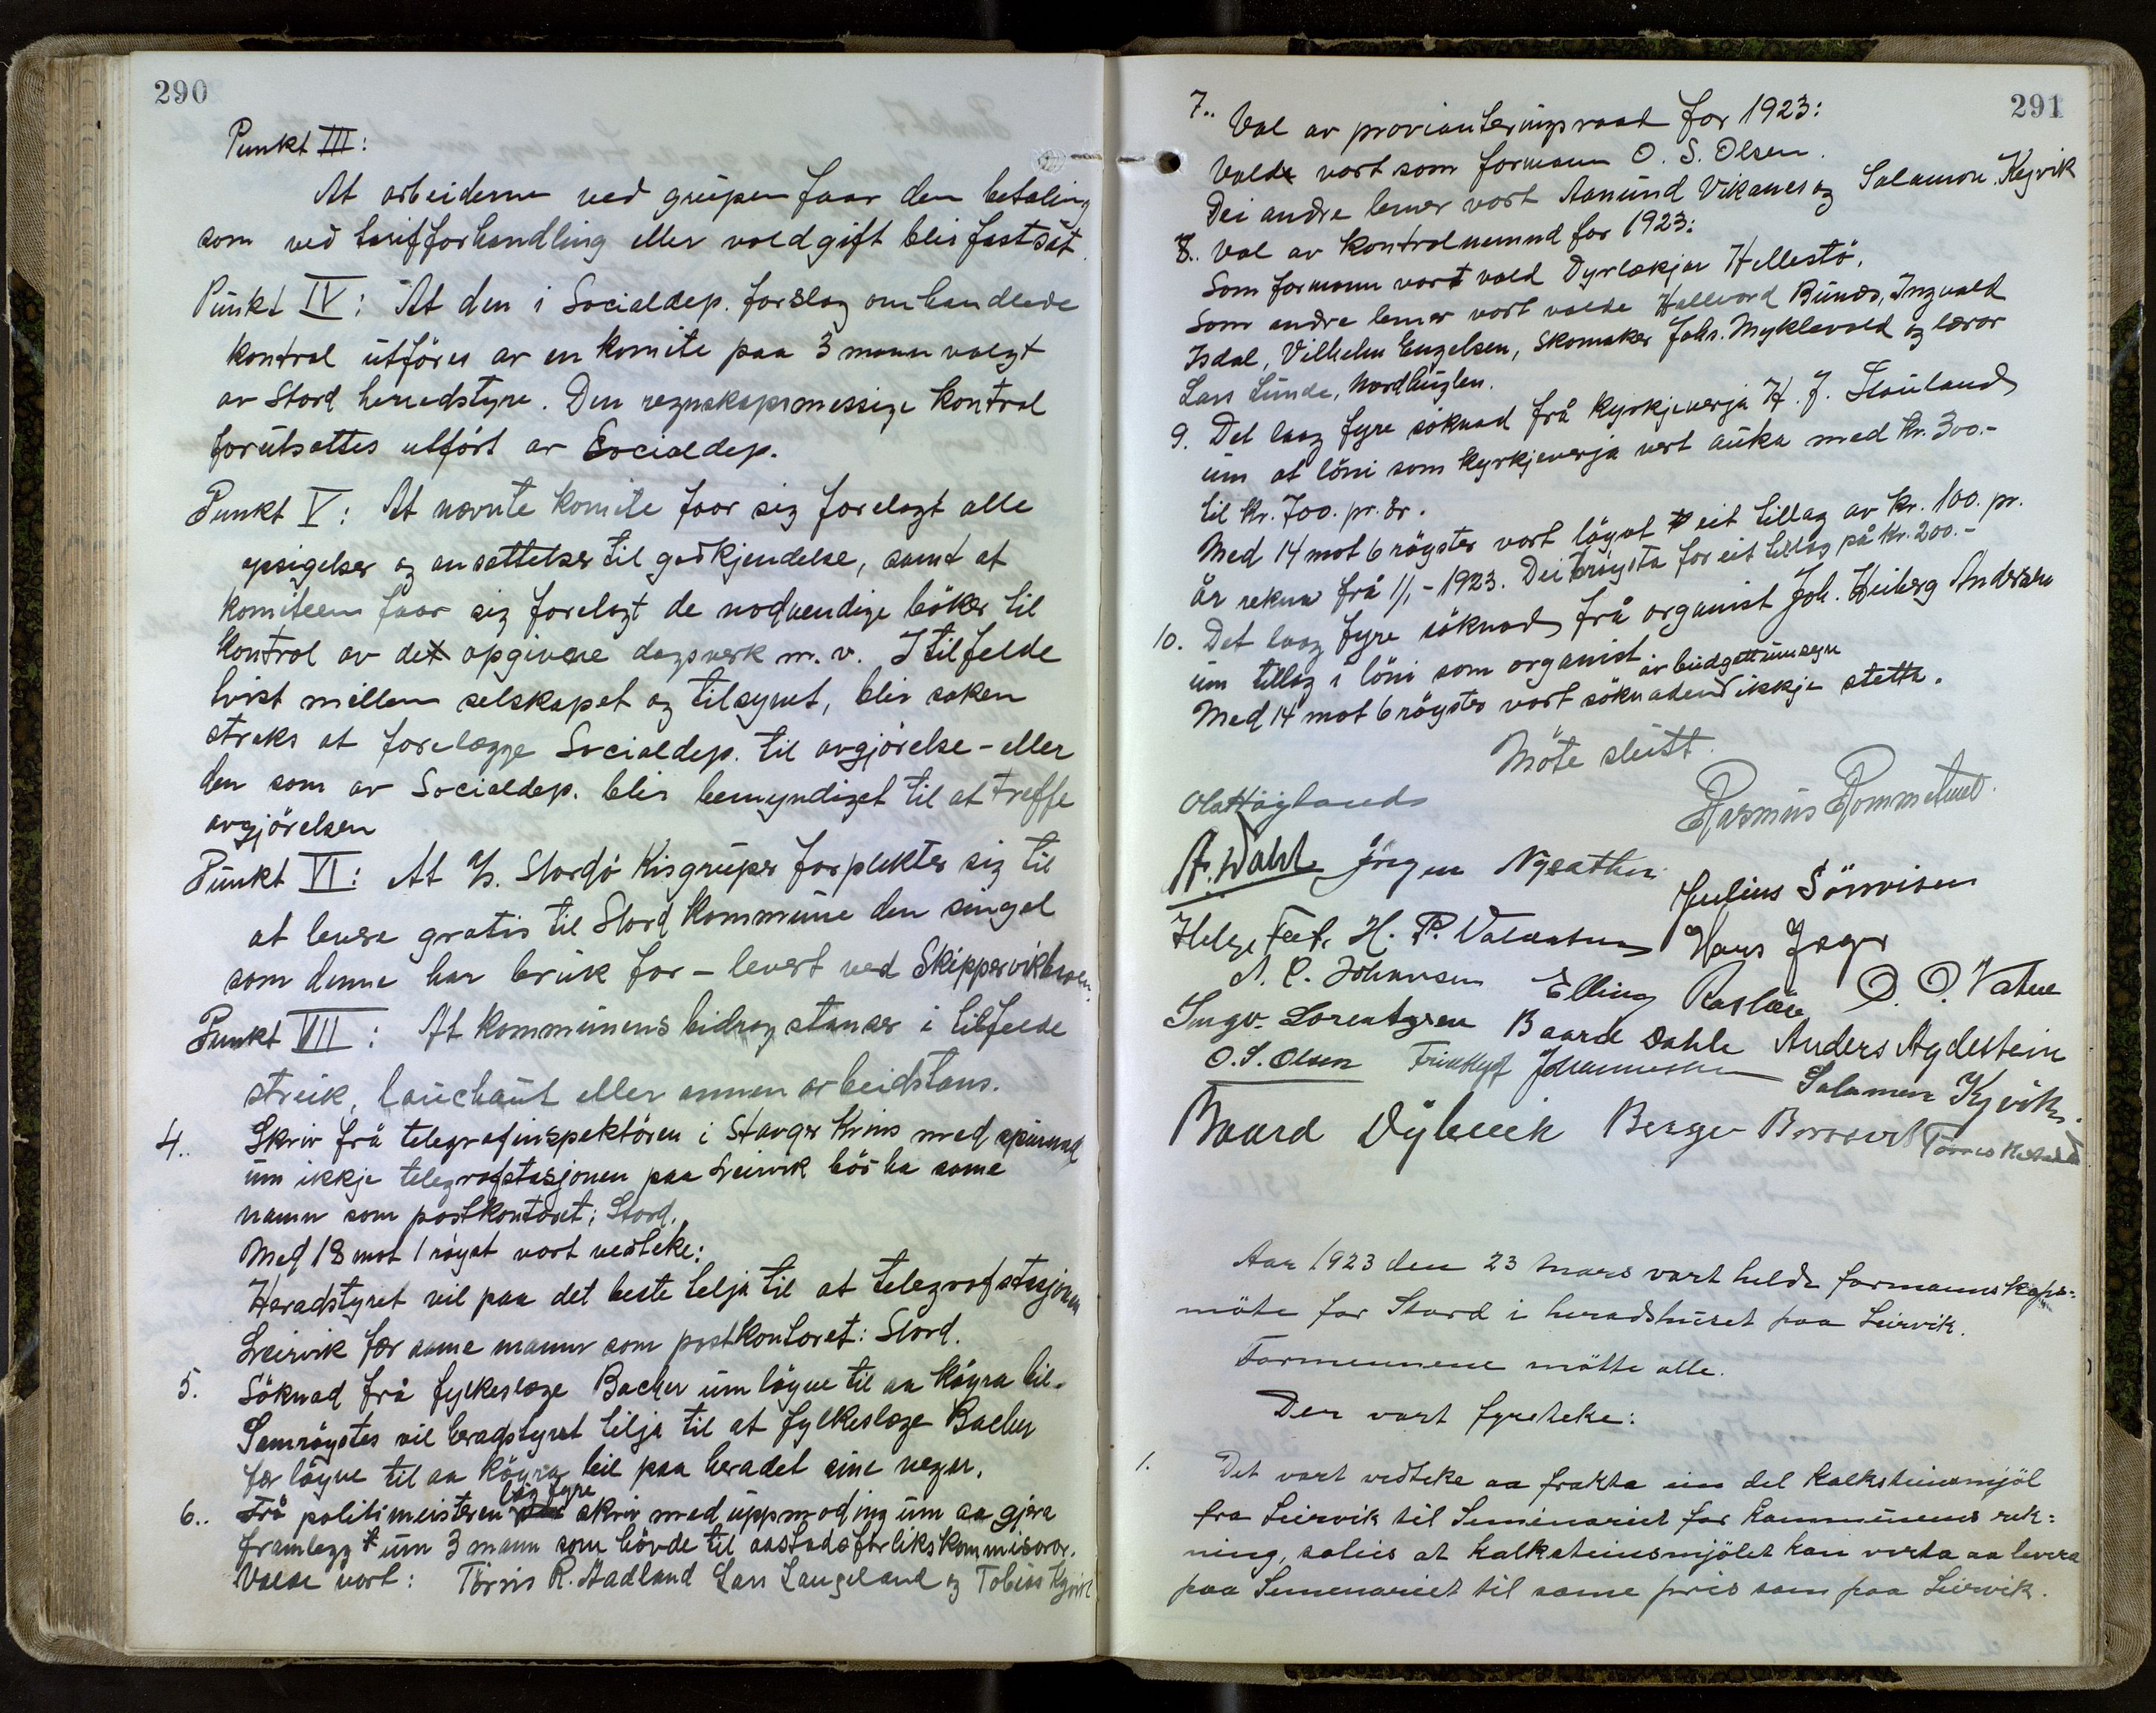 290
Punkt III:
At arbeiderne ved gruben faar den betaling
som ved tarifforhandling eller voldgift blir fastsat.
Punkt IV: At den i Socialdep. forslag omhandlede
kontrol utföres av en komite paa 3 mann valgt
av Stord herredstyre. Den regnskapsmessige kontrol
forutsettes utfört av Socialdep.
Punkt V: At nevnte komite faar sig forelagt alle
opsigelser og ansettelser til godkjendelse, samt at
komiteen faar sig forelagt de nödvendige böker til
kontrol av det opgivne dagsverk m.v. I tilfelde
tvist mellem selskapet og tilsynet, blir saken
straks at forelægge Socialdep. til avgjörelse - eller
den som av Socialdep. blir bemyndiget til at treffe
avgjörelsen
Punkt VI: At A/s. Stordö Kisgruber forplikter sig til
at levere gratis til Stord kommune den singel
som denne har bruk for - levert ved Skippervikbroen.
Punkt VII: At kommunens bidrag stanser i tilfelde
streik, lauchaut eller annen arbeidstans.
4.. Skriv frå telegrafinspektören i Stavger Krins med spursmaal
um ikkje telegrafstasjonen paa Leirvik bör ha same
namn som postkontoret: Stord.
Med 18 mot 1 röyst vart vedteke:
Heradstyret vil paa det beste telja til at telegrafstasjonen
Leirvik fær same namn som postkontoret: Stord.
5. Söknad frå fylkeslæge Bacher um löyve til aa köyra bil.
Samröystes vil heradstyret tilja til at fylkeslæge Bacher
fær löyve til aa köyra bil paa heradet sine vegar.
6.. Frå politimeisteren låg fyre skriv med uppmoding um aa gjera
framlegg um 3 mann som hövde til aastadsforlikskommisorar.
Valde vart: Törris R. Aadland Lars Langeland og Tobias Kyvik
291
7.. Val av provianteringsraad for 1923:
Vald vart som formann O. S. Olsen.
Dei andre lemer vart Aamund Vikanes og Salamon Kyvik
8.. Val av kontrolnemnd for 1923:
Som formann vart vald Dyrlækjar Hellestö.
Som andre lemer vart valde Hallvard Bunes, Ingvald
Isdal, Vilhelm Engelsen, Skomaker Johs. Myklevold og lærar
Lars Lunde, Nordhuglen.
9. Det laag fyre söknad frå kyrkjeverja H. J. Stauland
um at löni som kyrkjeverja vert auka med kr. 300.-
til kr. 700. pr. år.
Med 14 mot 6 röyster vart löyvt eit tillag av kr. 100. pr.
år rekna frå 1/1-1923. Dei 6 röysta for eit tillag på kr. 200.-
10. Det laag fyre söknad frå organist Joh. Heiberg Andersen
um tillag i löni som organist.
Med 14 mot 6 röyster vart söknaden av budgettumsyn ikkje stetta.
Möte slutt.
Ola Höyland
Rasmus Rommetveit
A. Dahl Jörgen Nysæther Julius Sönvisen
Helge H. P. Valvatne Hans Jæger
A. C. Johansen Elling O. O. Vatne
Ingv. Lorentzen Baard Dahle Anders Agdestein
O. S. Olsen Fridthjof Johannessen Salamon Kyvik
Baard Dyvik Berge
Aar 1923 den 23 mars vart helde formannskaps-
möte for Stord i heradshuset paa Leirvik.
Formennene mötte alle.
Der vart fyreteke:
1. Det vart vedteke aa frakta ein del kalksteinsmjöl
fra Leirvik til Seminariet for kommunens rek-
ning, soleis at kalksteinsmjölet kan verta aa levera
paa Semenariet til same pris som paa Leirvik.